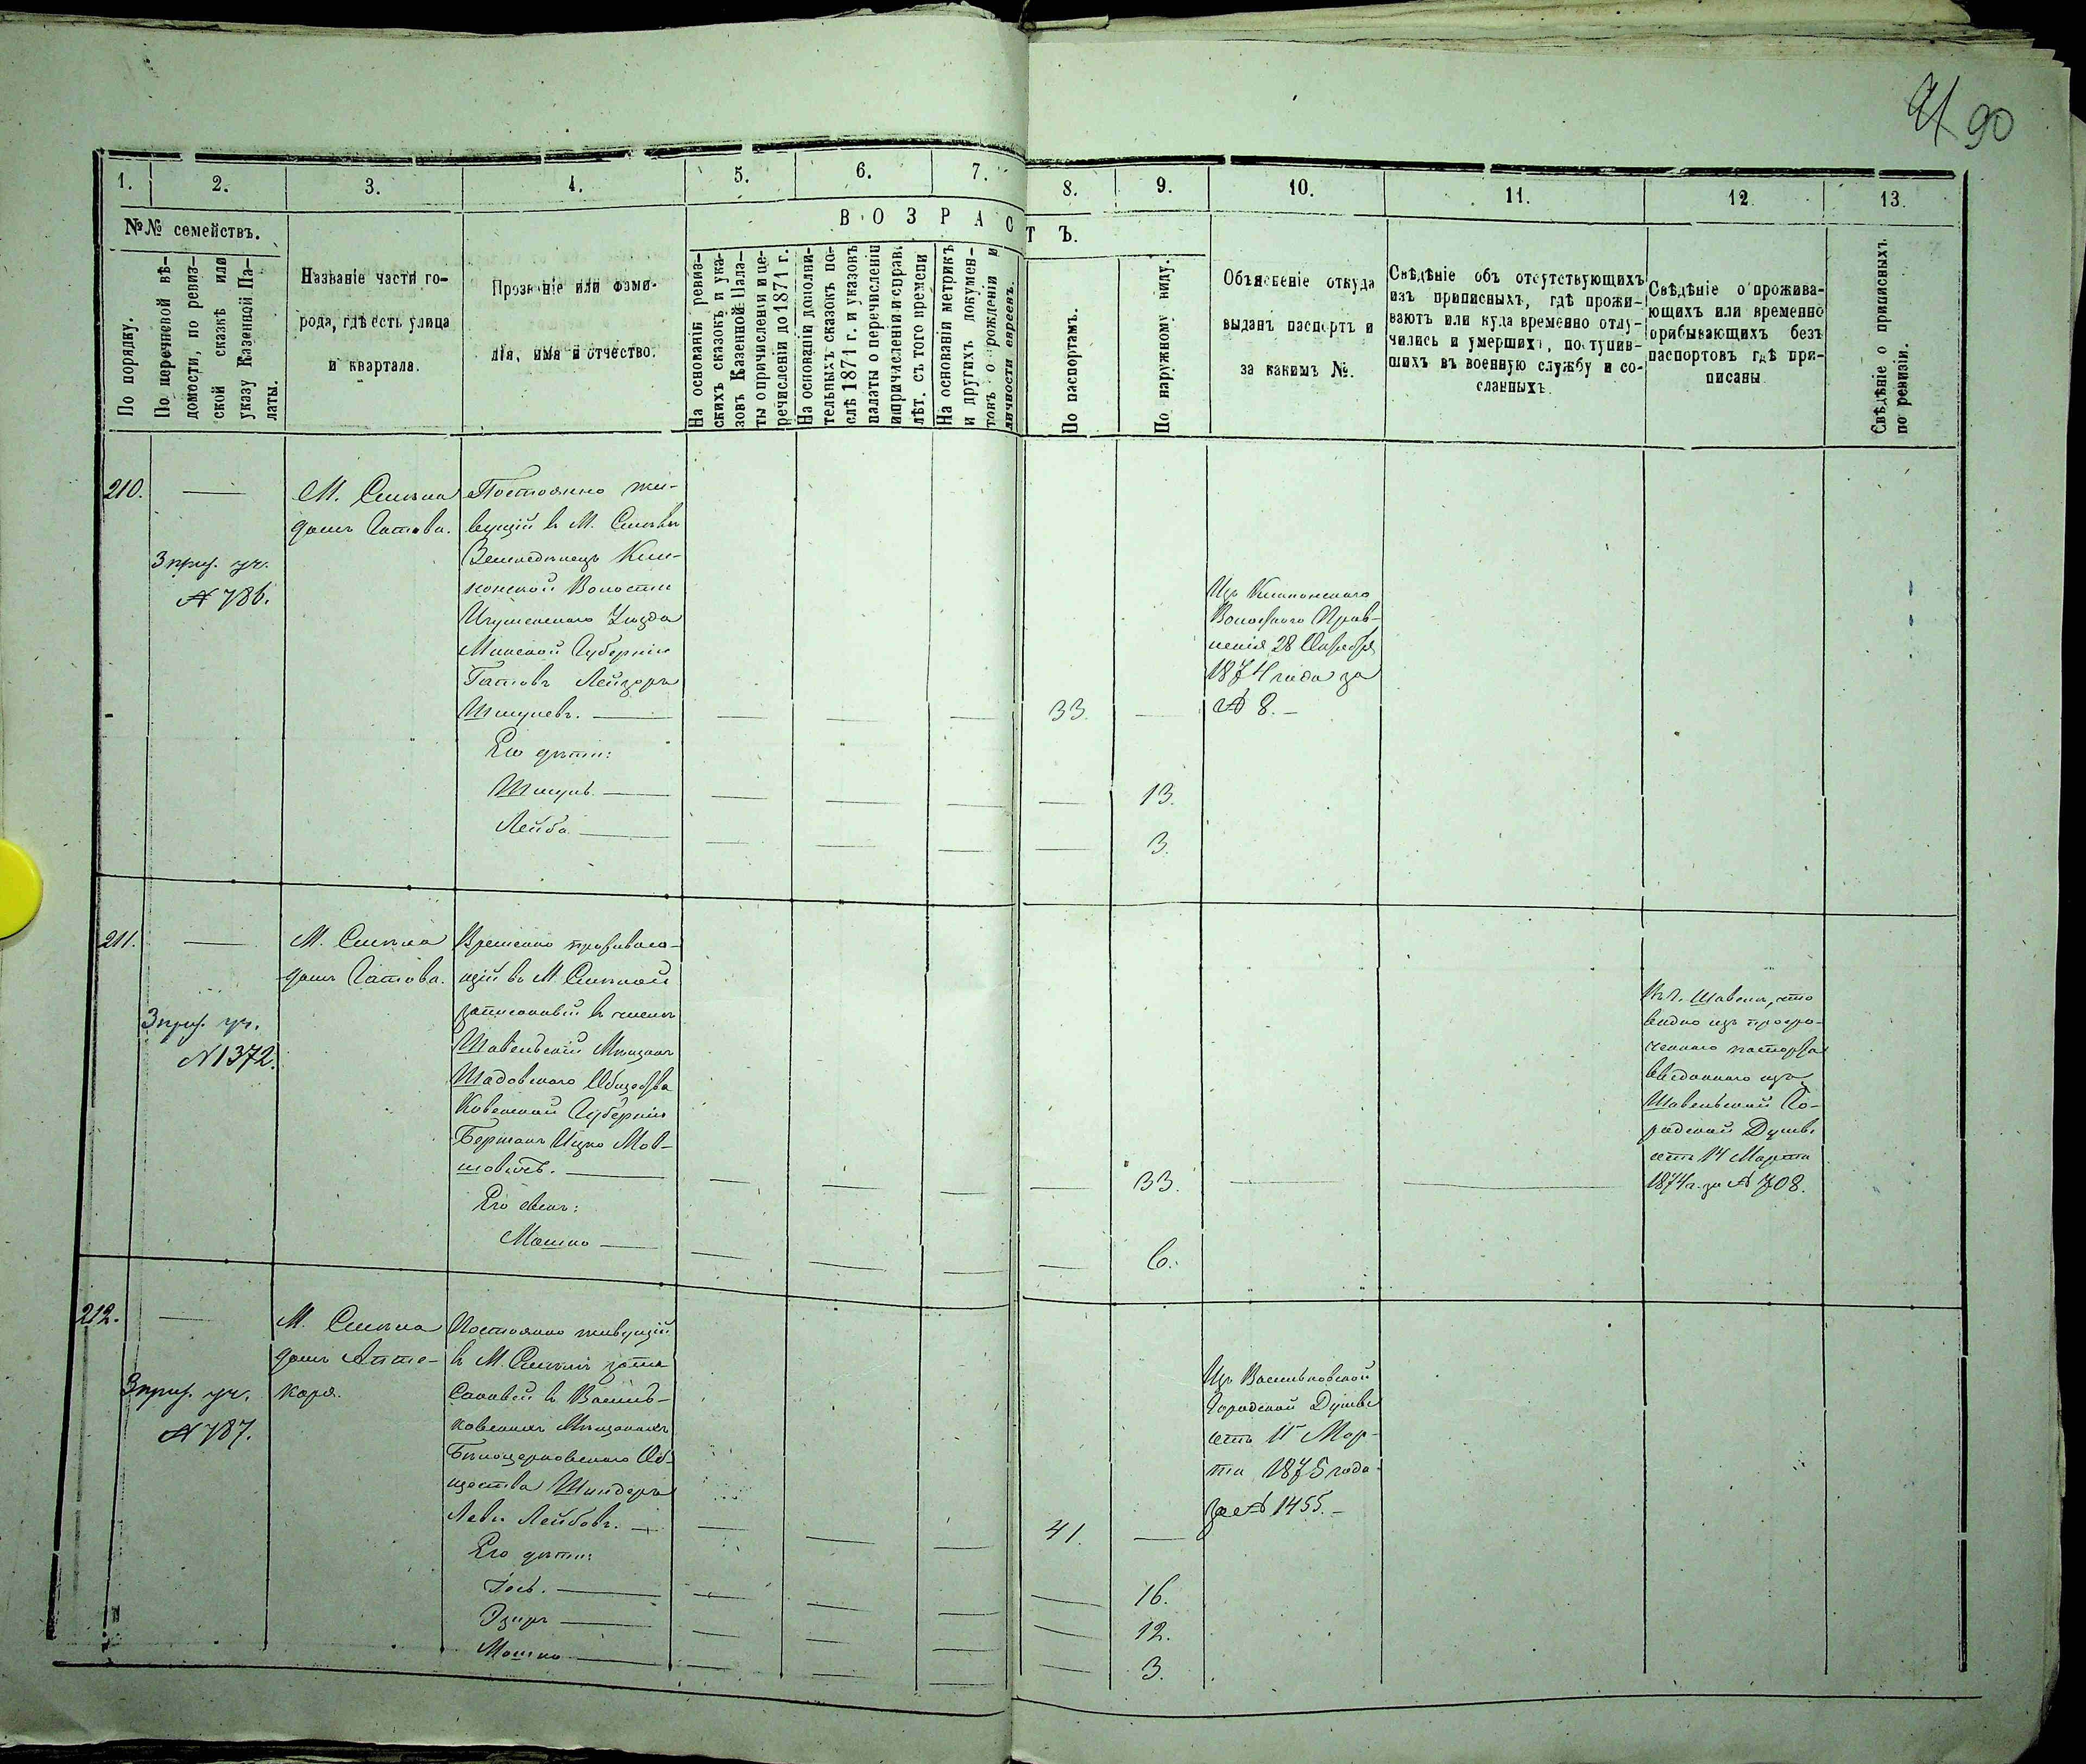 91 90
1. 2. 3. 4. 5. 6. 7. 8. 9. 10. 11. 12 13.
№№ семействъ.
По порядку.
По перечневой вѣ-
домости, по ревиз-
ской сказкѣ или
указу Казенной Па-
латы.
Названіе части го-
рода, гдѣ есть улица
и квартала.
Прозваніе или фами-
лія, имя и отчество.
ВОЗРАСТЪ.
На основаніи ревиз-
скихъ сказокъ и ука-
зовъ Казенной Пала-
ты о причисленіи и пе-
речисленіи до 1871 г.
На основаніи дополни-
тельныхъ сказокъ по-
слѣ 1871 г. и указовъ
палаты о перечисленіи
и причисленіи и справ.
лѣт. съ того времени
На основаніи метрикъ
и другихъ докумен-
товъ о рожденіи и
личности евреевъ.
По паспортамъ.
По наружному виду.
Объясненіе откуда
выданъ паспортъ и
за какимъ №.
Свѣдѣніе объ отсутствующихъ
изъ приписныхъ, гдѣ прожи-
ваютъ или куда временно отлу-
чились и умершихъ, поступив-
шихъ въ военную службу и со-
сланныхъ.
Свѣдѣніе о прожива-
ющихъ или временно
прибывающихъ безъ
паспортовъ гдѣ при-
писаны
Свѣдѣніе о приписныхъ
по ревизіи.
210.
3 приз. уч.
№ 786.
М. Смѣла
домъ Гатова.
Постоянно жи-
вущій в М. Смѣлѣ
Земледѣлецъ
Волости
Игуменскаго Уѣзда
Минской Губерніи
Гатовъ Лейзоръ
Шмулевъ.
33
Изъ
Волостного Прав-
ленія 28 Октября
1874 года за
№ 8.
Его дѣти:
Шмуль 13.
Лейба 3.
211.
3 приз. уч.
№ 1372.
М. Смѣла
домъ Гатова.
Временно проживаю-
щій въ М. Смѣлой
записанный в числѣ
Шавельскій Мѣщанъ
Шадовскаго Общества
Ковенской Губерніи
Берманъ Ицко Мов-
шовичъ.
33.
Въ г. Шавели, что
видно изъ просро-
ченнаго паспорта
выданнаго изъ
Шавельской Го-
родской Думы
отъ 14 Марта
1874 г. за № 708.
Его сынъ:
Мошко 6.
212.
3 приз. уч.
№ 787.
М. Смѣла
домъ Апте-
каря.
Постоянно живущій
в М. Смѣлѣ запи
санный в Василь-
ковскихъ Мѣщанахъ
Бѣлоцерковскаго Об-
щества Шиндеръ
Леви Лейбовъ.
41.
Изъ Васильковской
Городской Думы
отъ 11 Мар-
та 1875 года
за № 1455.
Его дѣти:
Іось. 16.
12.
Мошко 3.